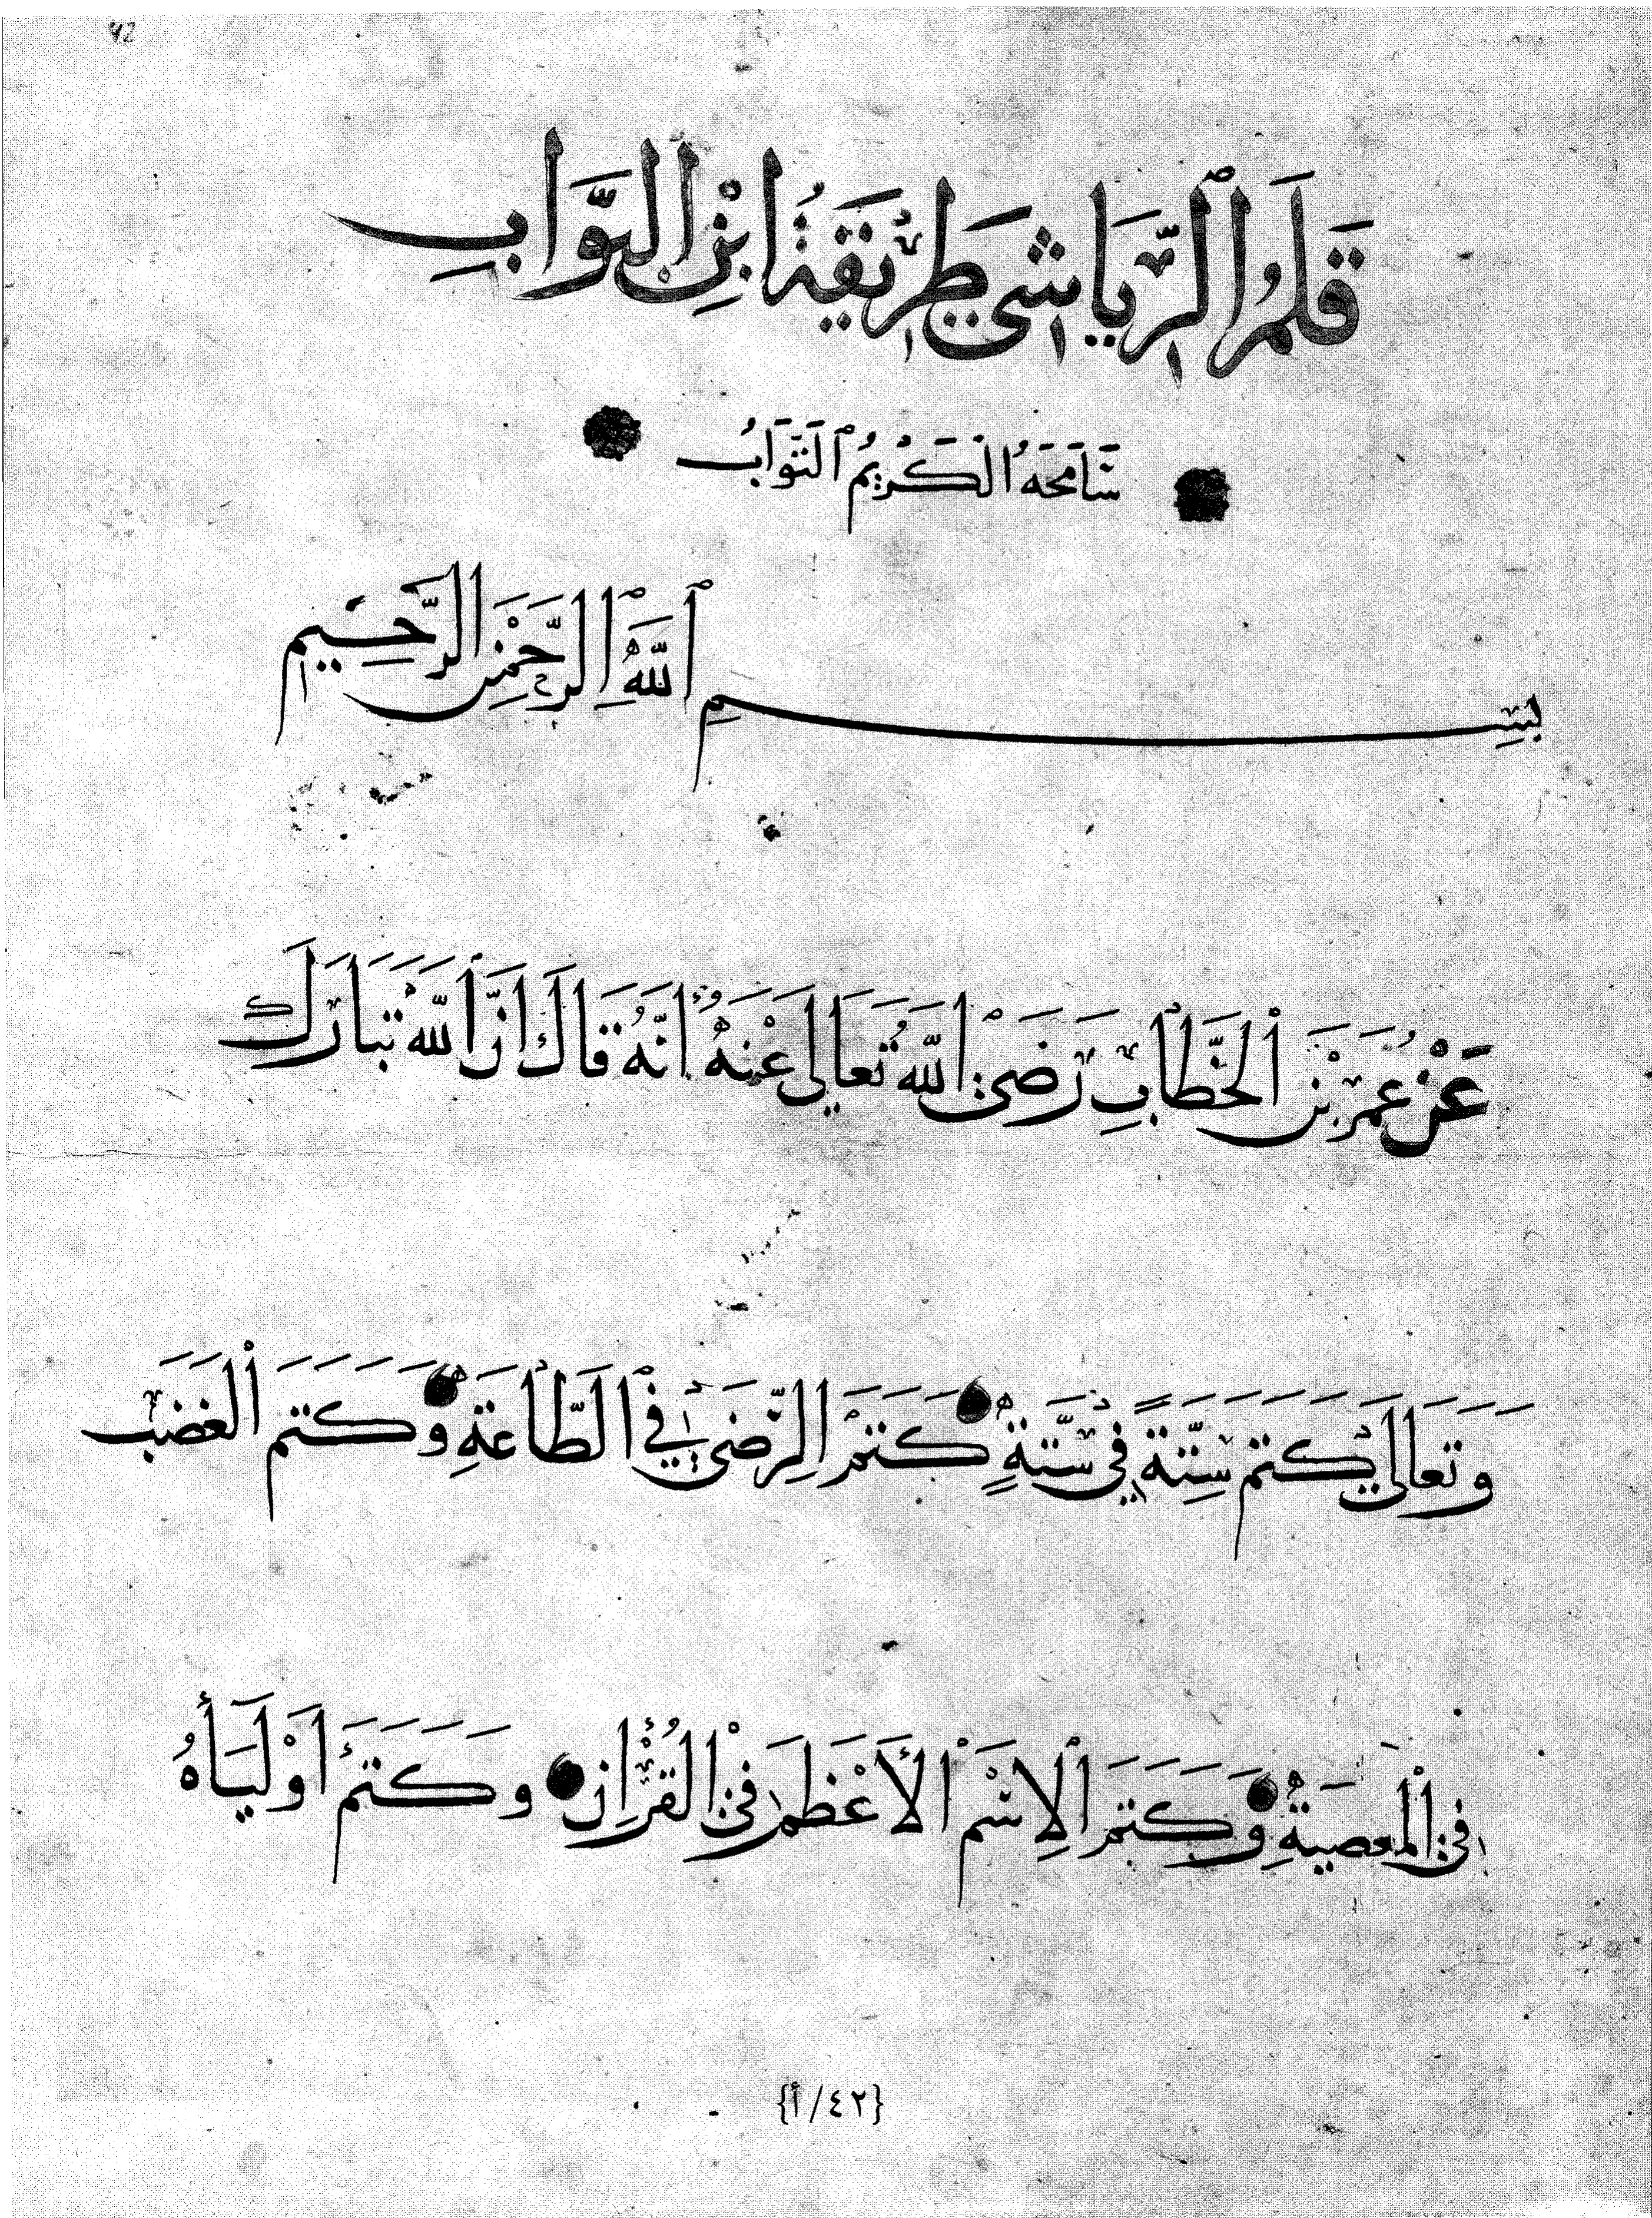 42
قَلَمُ الرِّيَاشِي طَرِيقَةُ ابْنِ الْبَوَّابِ
سَامَحَهُ الْكَرِيمُ التَّوَّابُ
بِسْمِ اللَّهِ الرَّحْمَنِ الرَّحِيمِ
عَنْ عُمَرَ بْنِ الْخَطَّابِ رَضِيَ اللَّهُ تَعَالَى عَنْهُ أَنَّهُ قَالَ إِنَّ اللَّهَ تَبَارَكَ
وَتَعَالَى كَتَمَ سِتَّةً فِي سِتَّةٍ كَتَمَ الرِّضَى فِي الطَّاعَةِ وَكَتَمَ الْغَضَبَ
فِي الْمَعْصِيَةِ وَكَتَمَ الِاسْمَ الْأَعْظَمَ فِي الْقُرْآنِ وَكَتَمَ أَوْلِيَاؤُهُ
{٤٢/أ}